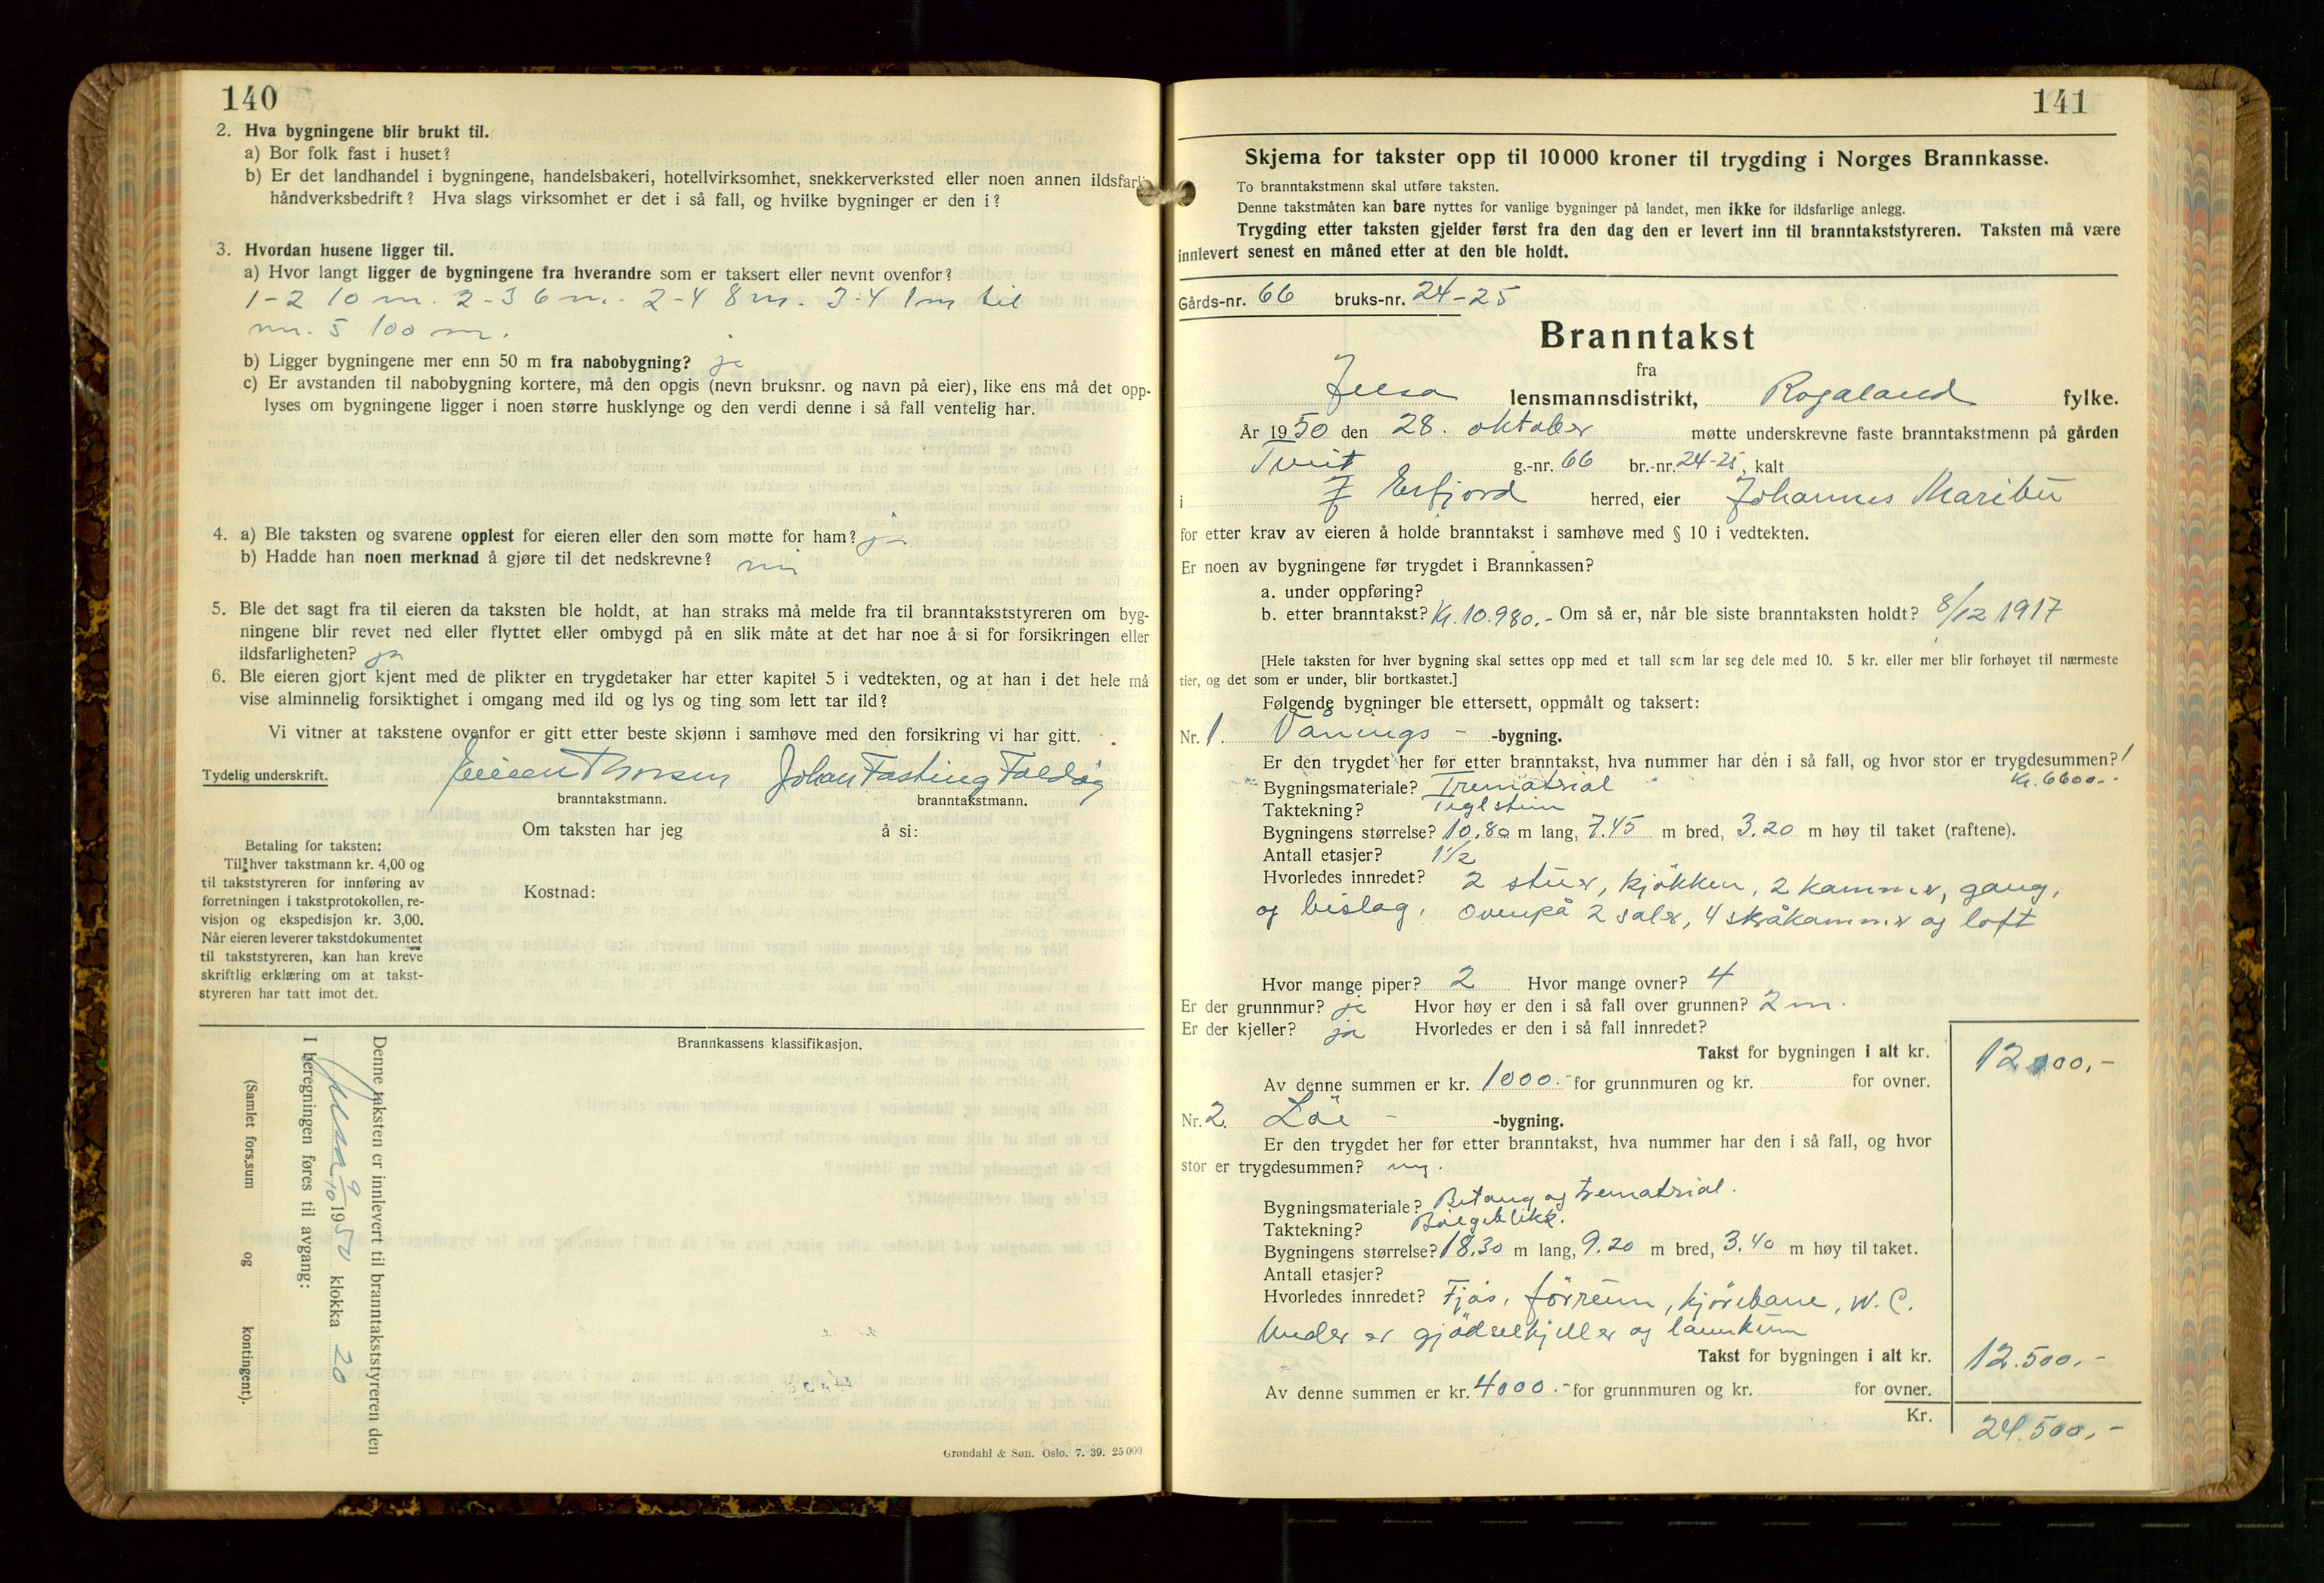 140
2. Hva bygningene blir brukt til.
a) Bor folk fast i huset?
b) Er det landhandel i bygningene, handelsbakeri, hotellvirksomhet, snekkerverksted eller noen annen ildsfarl.
håndverksbedrift? Hva slags virksomhet er det i så fall, og hvilke bygninger er den i?
3. Hvordan husene ligger til.
a) Hvor langt ligger de bygningene fra hverandre som er taksert eller nevnt ovenfor?
1-2 10 m. 2-3 6 m. 2-4 8 m. 3-4 1 m til
nr. 5 100 m.
b) Ligger bygningene mer enn 50 m fra nabobygning? ja
c) Er avstanden til nabobygning kortere, må den opgis (nevn bruksnr. og navn på eier), like ens må det opp-
lyses om bygningene ligger i noen større husklynge og den verdi denne i så fall ventelig har.
4. a) Ble taksten og svarene opplest for eieren eller den som møtte for ham? ja
b) Hadde han noen merknad å gjøre til det nedskrevne? nei
5. Ble det sagt fra til eieren da taksten ble holdt, at han straks må melde fra til branntakststyreren om byg-
ningene blir revet ned eller flyttet eller ombygd på en slik måte at det har noe å si for forsikringen eller
ildsfarligheten? ja
6. Ble eieren gjort kjent med de plikter en trygdetaker har etter kapitel 5 i vedtekten, og at han i det hele må
vise alminnelig forsiktighet i omgang med ild og lys og ting som lett tar ild?
Vi vitner at takstene ovenfor er gitt etter beste skjønn i samhøve med den forsikring vi har gitt.
Tydelig underskrift. Thorsen Johan Fasting Foldøy
branntakstmann. branntakstmann.
Om taksten har jeg å si:
Betaling for taksten:
Til hver takstmann kr. 4,00 og
til takststyreren for innføring av
forretningen i takstprotokollen, re-
visjon og ekspedisjon kr. 3,00.
Når eieren leverer takstdokumentet
til takststyreren, kan han kreve
skriftlig erklæring om at takst-
styreren har tatt imot det.
Kostnad:
Brannkassens klassifikasjon.
Denne taksten er innlevert til branntakststyreren den
Jelsa 9/10 1950 klokka 20
I beregningen føres til avgang:
(Samlet fors.sum og kontingent).
Grøndahl & Søn. Oslo. 7. 39. 25 000
141
Skjema for takster opp til 10 000 kroner til trygding i Norges Brannkasse.
To branntakstmenn skal utføre taksten.
Denne takstmåten kan bare nyttes for vanlige bygninger på landet, men ikke for ildsfarlige anlegg.
Trygding etter taksten gjelder først fra den dag den er levert inn til branntakststyreren. Taksten må være
innlevert senest en måned etter at den ble holdt.
Gårds-nr. 66 bruks-nr. 24-25
Branntakst
fra
Jelsa lensmannsdistrikt, Rogaland fylke.
År 1950 den 28. oktober møtte underskrevne faste branntakstmenn på gården
Tveit g.-nr. 66 br.-nr. 24-25, kalt
i Erfjord herred, eier Johannes Maribu
for etter krav av eieren å holde branntakst i samhøve med § 10 i vedtekten.
Er noen av bygningene før trygdet i Brannkassen?
a. under oppføring?
b. etter branntakst? Kr. 10.980.- Om så er, når ble siste branntaksten holdt? 8/12 1917
[Hele taksten for hver bygning skal settes opp med et tall som lar seg dele med 10. 5 kr. eller mer blir forhøyet til nærmeste
tier, og det som er under, blir bortkastet.]
Følgende bygninger ble ettersett, oppmålt og taksert:
Nr. 1. Vånings - -bygning.
Er den trygdet her før etter branntakst, hva nummer har den i så fall, og hvor stor er trygdesummen? 1
Kr. 6600.-
Bygningsmateriale? Trematrial
Taktekning? Teglstein
Bygningens størrelse? 10.80 m lang, 7.45 m bred, 3.20 m høy til taket (raftene).
Antall etasjer? 1 1/2
Hvorledes innredet? 2 stuer, kjøkken, 2 kammer, gang,
og bislag, ovenpå 2 saler, 4 skråkammer og loft
Hvor mange piper? 2 Hvor mange ovner? 4
Er der grunnmur? ja Hvor høy er den i så fall over grunnen? 2 m.
Er der kjeller? ja Hvorledes er den i så fall innredet?
Takst for bygningen i alt kr. 12000,-
Av denne summen er kr. 1000.- for grunnmuren og kr. for ovner.
Nr. 2. Løe - -bygning.
Er den trygdet her før etter branntakst, hva nummer har den i så fall, og hvor
stor er trygdesummen? ny.
Bygningsmateriale? Betong og trematrial.
Taktekning? Bølgeblikk.
Bygningens størrelse? 18.30 m lang, 9.20 m bred, 3.40 m høy til taket.
Antall etasjer?
Hvorledes innredet? Fjøs, fôrreum, kjørebane, W.C.
Under er gjødselkjeller og landkum
Takst for bygningen i alt kr. 12.500.-
Av denne summen er kr. 4000.- for grunnmuren og kr. for ovner.
Kr. 24.500,-